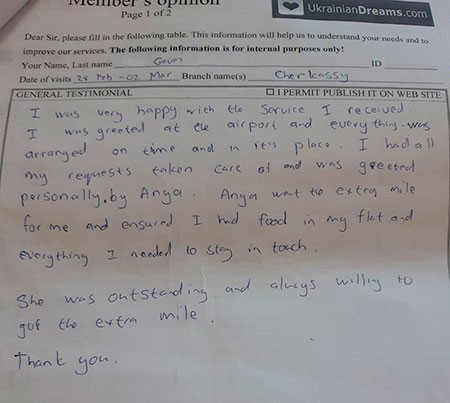 Member's opinion
Page 1 of 2
UkrainianDreams.com
Dear Sir, please fill in the following table. This information will help us to understand your needs and to
improve our services. The following information is for internal purposes only!
Your Name, Last name Gavin ID
Date of visits 28 Feb - 02 Mar Branch name(s) Cherkassy
GENERAL TESTIMONIAL ☐ I PERMIT PUBLISH IT ON WEB SITE
I was very happy with the Service I received.
I was greeted at the airport and everything was
arranged on time and in it's place. I had all
my requests taken care of and was greeted
personally, by Anya. Anya went the extra mile
for me and ensured I had food in my flat and
everything I needed to stay in touch.
She was outstanding and always willing to
go the extra mile.
Thank you.